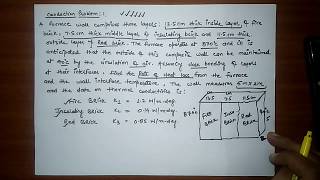 Conduction Problem: 1
A furnace wall comprises three layers: 13.5 cm thick inside layer of fire
brick, 7.5 cm thick middle layer of insulating brick and 11.5 cm thick
outside layer of Red brick. The furnace operates at 870°C and it is
anticipated that the outside of this composite wall can be maintained
at 40°C by the circulation of air. Assuming close bonding of layers
at their interfaces, find the rate of heat loss from the furnace
and the wall interface temperature. The wall measures 5m x 2m
and the data on thermal conductivities is:
Fire Brick K1 = 1.2 W/m-deg
Insulating Brick K2 = 0.14 W/m-deg
Red Brick K3 = 0.85 W/m-deg
13.5 7.5 11.5
870°C
Fire Brick
Insu Brick
Red Brick